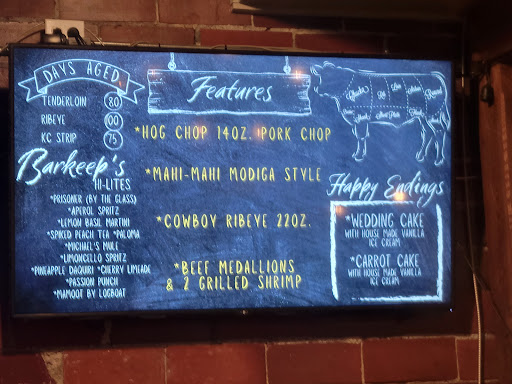 DAYS AGED
TENDERLOIN 80
RIBEYE 00
KC STRIP 75
Barkeep's
HI-LITES
*PRISONER (BY THE GLASS)
*APEROL SPRITZ
*LEMON BASIL MARTINI
*SPIKED PEACH TEA *PALOMA
*MICHAEL'S MULE
*LIMONCELLO SPRITZ
*PINEAPPLE DAQUIRI *CHERRY LIMEADE
*PASSION PUNCH
*MAMOOT BY LOGBOAT
Features
*HOG CHOP 14OZ. PORK CHOP
*MAHI-MAHI MODIGA STYLE
*COWBOY RIBEYE 22OZ.
*BEEF MEDALLIONS
& 2 GRILLED SHRIMP
Chuck
Rib
Loin
Round
Happy Endings
*WEDDING CAKE
WITH HOUSE MADE VANILLA
ICE CREAM
*CARROT CAKE
WITH HOUSE MADE VANILLA
ICE CREAM